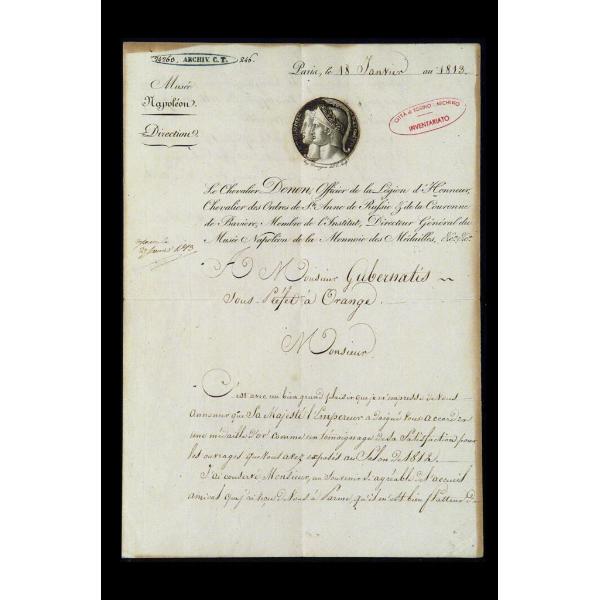 24260. ARCHIV. C. T. 246.
Paris, le 18 Janvier au 1813.
Musée
Napoléon.
Direction.
CITTÀ di TORINO - ARCHIVIO
INVENTARIATO
Le Chevalier Denon, Officier de la Légion d'Honneur,
Chevalier des Ordres de Ste Anne de Russie & de la Couronne
de Bavière, Membre de l'Institut, Directeur Général du
Musée Napoléon de la Monnoie des Médailles, &c. &c.
1813
A Monsieur Gubernatis
Sous-Préfet à Orange.
Monsieur
C'est avec un bien grand plaisir que je m'empresse de Vous
annoncer que Sa Majesté l'Empereur a daigné vous accorder
une médaille d'or comme un témoignage de sa Satisfaction pour
les ouvrages que Vous avez exposés au Salon de 1812.
J'ai conservé Monsieur, un souvenir si agréable de l'accueil
amical que j'ai reçu de Vous à Parme qu'il m'est bien flatteur de